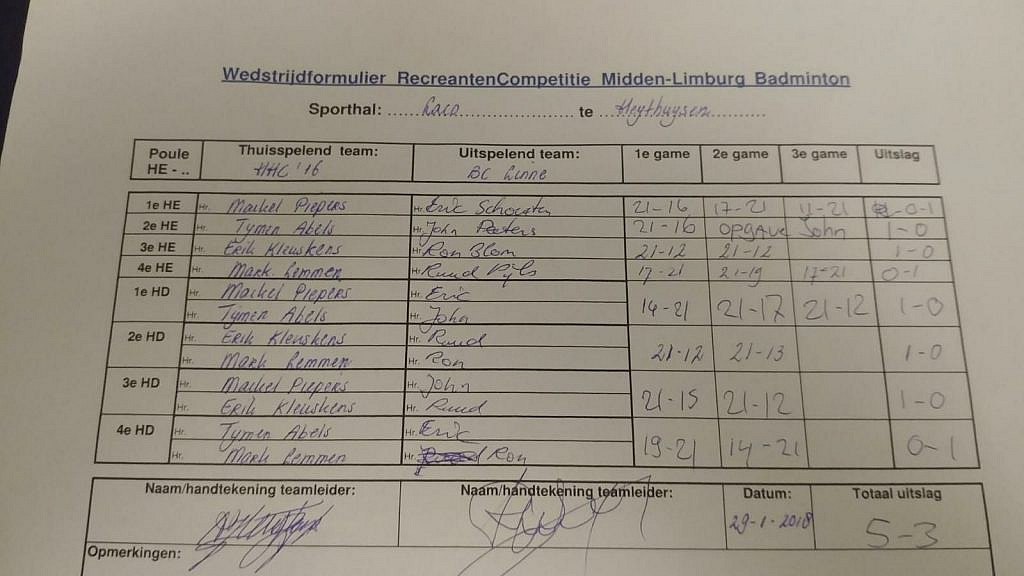 Wedstrijdformulier RecreantenCompetitie Midden-Limburg Badminton
Sporthal: ...... Laco ...................... te ... Heythuysen ...........
Poule HE - .. Thuisspelend team: HHC '16 Uitspelend team: BC Linne 1e game 2e game 3e game Uitslag
1e HE Hr. Maikel Piepers Hr. Eric Schoesten 21-16 17-21 11-21 0-1
2e HE Hr. Tymen Abels Hr. John Peeters 21-16 OPGAVE John 1-0
3e HE Hr. Erik Kleuskens Hr. Ron Blom 21-12 21-12 1-0
4e HE Hr. Mark Lemmen Hr. Ruud Pijls 17-21 21-19 17-21 0-1
1e HD Hr. Maikel Piepers Hr. Eric 14-21 21-17 21-12 1-0
Hr. Tymen Abels Hr. John
2e HD Hr. Erik Kleuskens Hr. Ruud 21-12 21-13 1-0
Hr. Mark Lemmen Hr. Ron
3e HD Hr. Maikel Piepers Hr. John 21-15 21-12 1-0
Hr. Erik Kleuskens Hr. Ruud
4e HD Hr. Tymen Abels Hr. Eric 19-21 14-21 0-1
Hr. Mark Lemmen Hr. Ron
Naam/handtekening teamleider: Naam/handtekening teamleider: Datum: Totaal uitslag
29-1-2018 5-3
Opmerkingen: